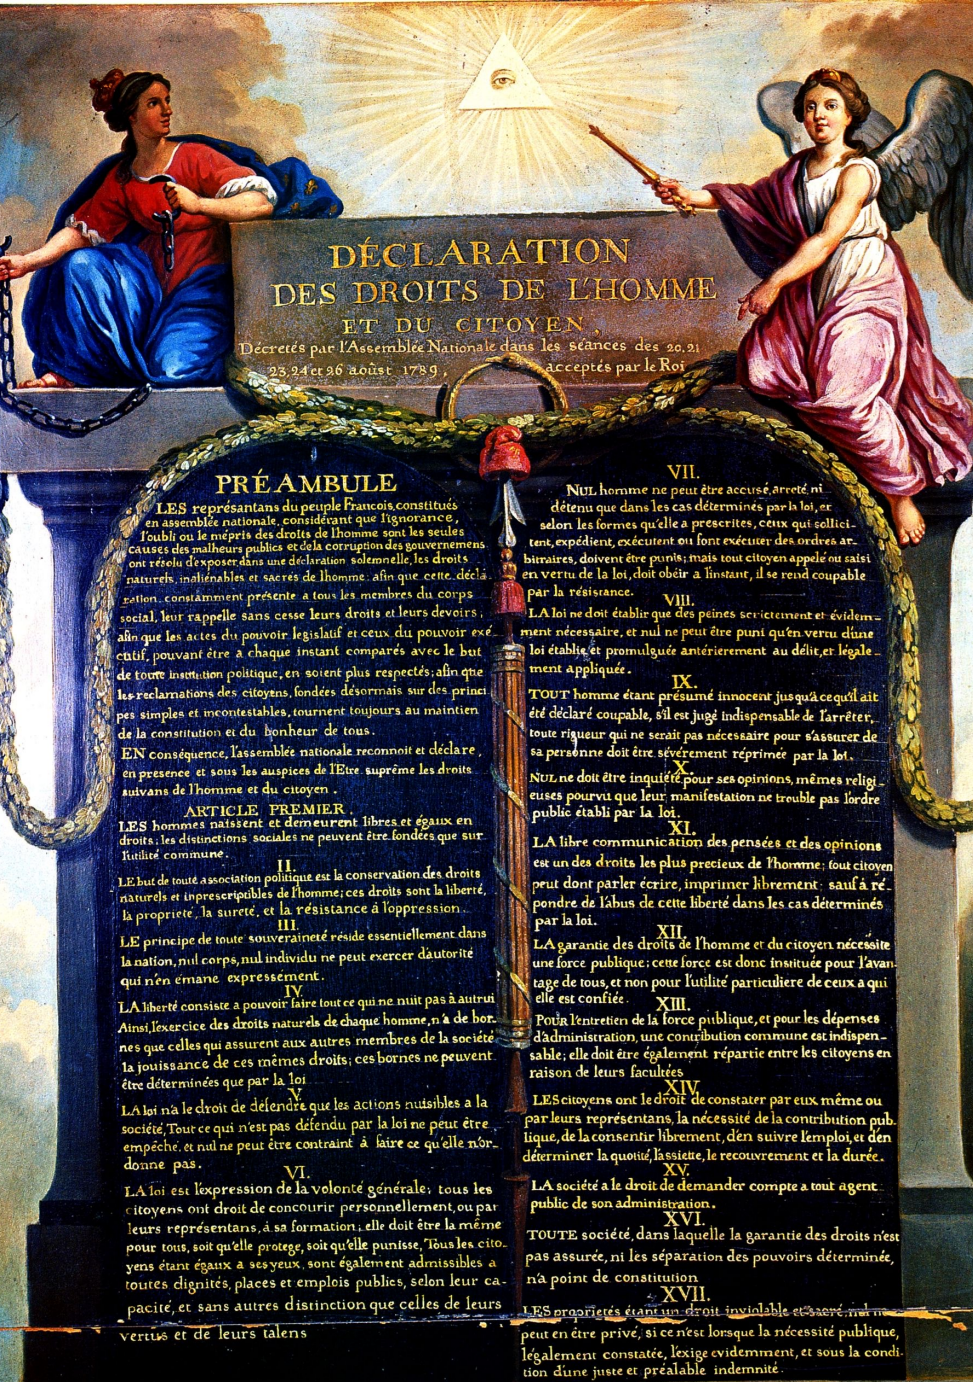 DÉCLARATION
DES DROITS DE L'HOMME
ET DU CITOYEN,
Décretés par l'Assemblée Nationale dans les séances des 20. 21
23, 24 et 26 août 1789, acceptés par le Roi
PRÉAMBULE
LES représantans du peuple Francois, constitués
en assemblée nationale, considérant que l'ignorance,
l'oubli ou le mépris des droits de l'homme sont les seules
causes des malheurs publics et de la corruption des gouvernemens
ont résolu d'exposer, dans une déclaration solemnelle, les droits
naturels, inaliénables et sacrés de l'homme: afin que cette décla
ration, constamment présente a tous les membres du corps
social, leur rappelle sans cesse leurs droits et leurs devoirs;
afin que les actes du pouvoir legislatif et ceux du pouvoir exé
cutif, pouvant être a chaque instant comparés avec le but
de toute institution politique, en soient plus respectés; afin que
les reclamations des citoyens, fondées désormais sur des princi
pes simples et incontestables, tournent toujours au maintien
de la constitution et du bonheur de tous.
EN conséquence, l'assemblée nationale reconnoit et déclare,
en presence et sous les auspices de l'Etre suprême les droits
suivans de l'homme et du citoyen.
ARTICLE PREMIER
LES hommes naissent et demeurent libres et égaux en
droits; les distinctions sociales ne peuvent être fondées que sur
l'utilité commune.
II.
LE but de toute association politique est la conservation des droits
naturels et inprescriptibles de l'homme; ces droits sont la liberté,
la propriete, la sureté, et la résistance à l'oppression.
III.
LE principe de toute souveraineté réside essentiellement dans
la nation, nul corps, nul individu ne peut exercer d'autorité
qui n'en émane expressément.
IV.
LA liberté consiste a pouvoir faire tout ce qui ne nuit pas à autrui
Ainsi, l'exercice des droits naturels de chaque homme, n'a de bor-
nes que celles qui assurent aux autres membres de la société
la jouissance de ces mêmes droits; ces bornes ne peuvent
être déterminées que par la loi
V.
LA loi n'a le droit de défendre que les actions nuisibles a la
société, Tout ce qui n'est pas défendu par la loi ne peut être
empêché, et nul ne peut être contraint à faire ce qu'elle n'or-
donne pas.
VI.
LA loi est l'expression de la volonté générale; tous les
citoyens ont droit de concourir personnellement, ou par
leurs représentans, à sa formation; elle doit être la même
pour tous, soit qu'elle protege, soit qu'elle punisse, Tous les cito-
yens étant égaux a ses yeux, sont également admissibles a
toutes dignités, places et emplois publics, selon leur ca-
pacité, et sans autres distinction que celles de leurs
vertus et de leurs talens
VII.
NUL homme ne peut être accusé, arreté, ni
détenu que dans les cas déterminés par la loi, et
selon les formes qu'elle a prescrites, ceux qui sollici-
tent, expédient, exécutent ou font exécuter des ordres ar-
bitraires, doivent être punis; mais tout citoyen appelé ou saisi
en vertu de la loi, doit obéir a l'instant, il se rend coupable
par la résistance.
VIII.
LA loi ne doit établir que des peines strictement et évidem-
ment nécessaire, et nul ne peut être puni qu'en vertu d'une
loi établie et promulguée antérierement au délit, et légale-
ment appliquée.
IX.
TOUT homme étant présumé innocent jusqu'à ce qu'il ait
été déclaré coupable, s'il est jugé indispensable de l'arrêter,
toute rigueur qui ne serait pas nécessaire pour s'assurer de
sa personne doit être sévérement réprimée par la loi.
X.
NUL ne doit être inquiété pour ses opinions, mêmes religi-
euses pourvu que leur manifestation ne trouble pas l'ordre
public établi par la loi.
XI.
LA libre communication des pensées et des opinions
est un des droits les plus precieux de l'homme; tout citoyen
peut dont parler écrire, imprimer librement; sauf à ré-
pondre de l'abus de cette liberté dans les cas déterminés
par la loi.
XII.
LA garantie des droits de l'homme et du citoyen nécessite
une force publique; cette force est donc instituée pour l'avan
tage de tous, et non pour l'utilité particuliere de ceux a qui
elle est confiée.
XIII.
POUR l'entretien de la force publique, et pour les dépenses
d'administration, une contribution commune est indispen-
sable; elle doit être également répartie entre les citoyens en
raison de leurs facultées
XIV.
LES citoyens ont le droit de constater par eux même ou
par leurs représentans, la nécessité de la contribution pub-
lique, de la consentir librement, d'en suivre l'emploi, et d'en
déterminer la quotité, l'assiette, le recouvrement et la durée.
XV.
LA société a le droit de demander compte a tout agent
public de son administration.
XVI.
TOUTE société, dans laquelle la garantie des droits n'est
pas assurée, ni les séparation des pouvoirs déterminée,
n'a point de constitution
XVII.
LES proprietés étant un droit inviolable et sacré, nul ne
peut en être privé, si ce n'est lorsque la nécessité publique,
légalement constatée, l'exige evidemment, et sous la condi-
tion d'une juste et préalable indemnité.